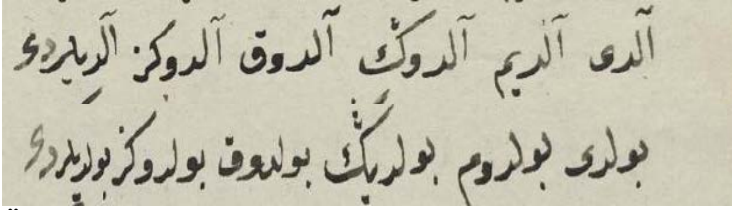 آلدى آلديم آلدوڭ آلدوق آلدوكز آلديلر
بولدى بولدوم بولديڭ بولدوق بولدوكز بولديلر